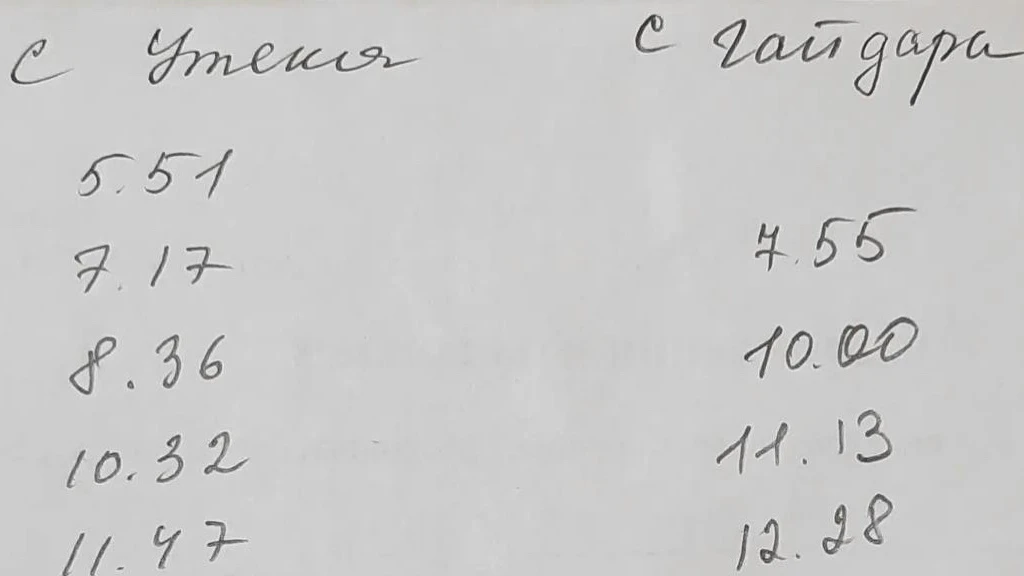 с Утекая с Гайдара
5.51
7.17 7.55
8.36 10.00
10.32 11.13
11.47 12.28